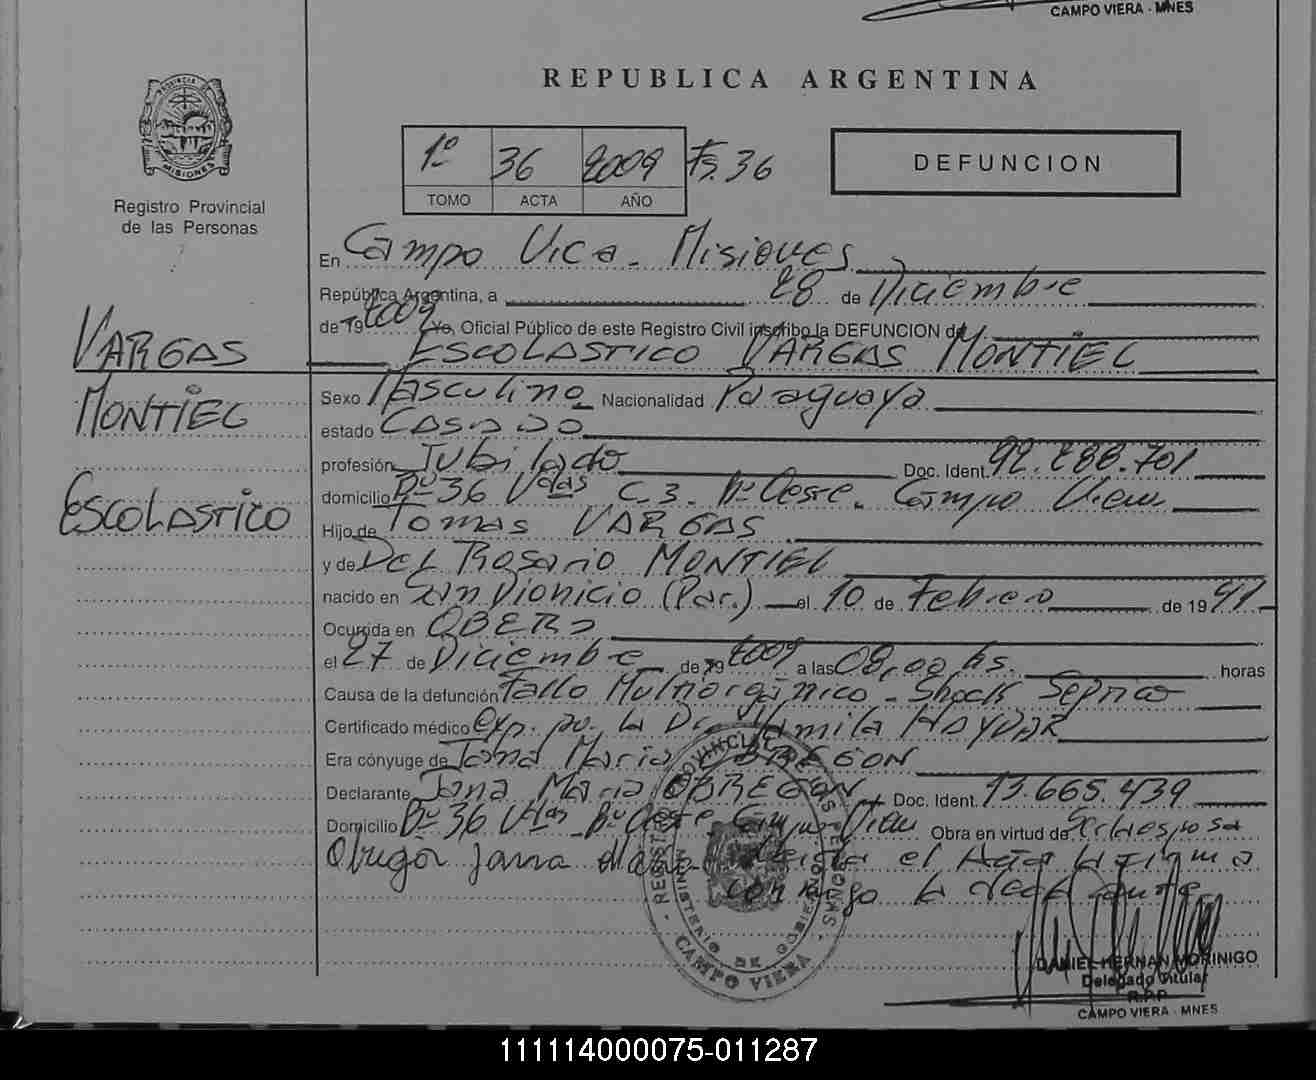 CAMPO VIERA - MNES
REPUBLICA ARGENTINA
PROVINCIA DE MISIONES
1º 36 2009 Fº. 36
TOMO ACTA AÑO
DEFUNCION
Registro Provincial
de las Personas
En Campo Viera - Misiones
República Argentina, a 28 de Diciembre
de 19 2009 Yo, Oficial Público de este Registro Civil inscribo la DEFUNCION de
ESCOLASTICO VARGAS MONTIEL
VARGAS
MONTIEL
ESCOLASTICO
Sexo Masculino Nacionalidad Paraguaya
estado CASADO
profesión Jubilado Doc. Ident. 92.288.701
domicilio Bº 36 Vdas C.3. Bº Oeste. Campo Viera
Hijo de Tomas VARGAS
y de Del Rosario MONTIEL
nacido en San Dionicio (Par.) el 10 de Febrero de 19 41
Ocurrida en OBERA
el 27 de Diciembre de 19 2009 a las 08,00 hs. horas
Causa de la defunción Fallo Multiorgánico - Shock Septico
Certificado médico exp. po. la Dr. Yamila HAYDAR
Era cónyuge de Juana Maria OBREGON
Declarante Juana Maria OBREGON Doc. Ident. 13.665.439
Domicilio Bº 36 Vdas - Bº Oeste - Campo Viera Obra en virtud de ser la esposa
Obregon Juana Maria Leida el Acta la firma
conmigo la declarante
REGISTRO PROVINCIAL DE LAS PERSONAS
MINISTERIO DE GOBIERNO
CAMPO VIERA
DANIEL HERNAN MORINIGO
Delegado Titular
R.P.P
CAMPO VIERA - MNES
111114000075-011287